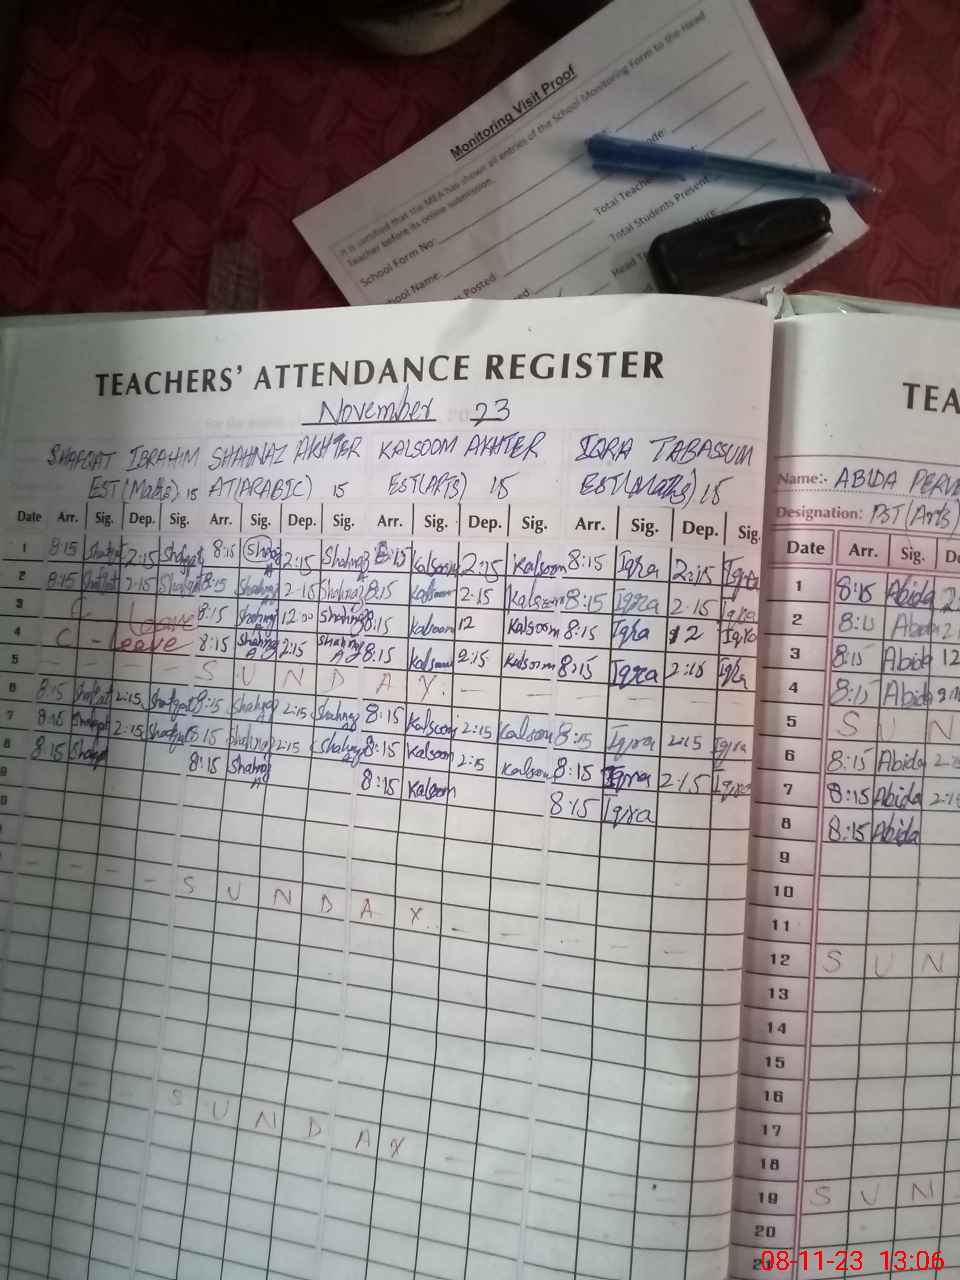 Monitoring Visit Proof
It is certified that the MEA has shown all entries of the School Monitoring Form to the Head
Teacher before its online submission.
School Form No:
ode:
ool Name:
Total Teache
Posted:
Total Students Present
Head T
ature:
TEACHERS' ATTENDANCE REGISTER
November 23
SHAFQAT IBRAHIM SHAHNAZ AKHTER KALSOOM AKHTER IQRA TABASSUM
EST (Maths) 15 AT (ARABIC) 15 EST (ARTS) 15 EST (Maths) 15
Date Arr. Sig. Dep. Sig. Arr. Sig. Dep. Sig. Arr. Sig. Dep. Sig. Arr. Sig. Dep. Sig.
1 8:15 Shafqat 2:15 Shafqat 8:15 Shahnaz 2:15 Shahnaz 8:15 Kalsoom 2:15 Kalsoom 8:15 Iqra 2:15 Iqra
2 8:15 Shafqat 2:15 Shafqat 8:15 Shahnaz 2:15 Shahnaz 8:15 Kalsoom 2:15 Kalsoom 8:15 Iqra 2:15 Iqra
3 C - Leave 8:15 Shahnaz 12:00 Shahnaz 8:15 Kalsoom 12 Kalsoom 8:15 Iqra 12 Iqra
4 C - Leave 8:15 Shahnaz 2:15 Shahnaz 8:15 Kalsoom 2:15 Kalsoom 8:15 Iqra 2:15 Iqra
5 - - - - S U N D A Y - - - - - -
6 8:15 Shafqat 2:15 Shafqat 8:15 Shahnaz 2:15 Shahnaz 8:15 Kalsoom 2:15 Kalsoom 8:15 Iqra 2:15 Iqra
7 8:15 Shafqat 2:15 Shafqat 8:15 Shahnaz 2:15 Shahnaz 8:15 Kalsoom 2:15 Kalsoom 8:15 Iqra 2:15 Iqra
8 8:15 Shafqat 8:15 Shahnaz 8:15 Kalsoom 8:15 Iqra
9
0
- - - - S U N D A Y - - - - -
- - - - S U N D A Y - - -
TEA
Name:- ABIDA PERVE
Designation: PST (Arts)
Date Arr. Sig. De
1 8:15 Abida 2:
2 8:15 Abida 2
3 8:15 Abida 12
4 8:15 Abida
5 S U N
6 8:15 Abida 2:
7 8:15 Abida 2:1
8 8:15 Abida
9
10
11
12 S U N
13
14
15
16
17
18
19 S U N
20
21
08-11-23 13:06